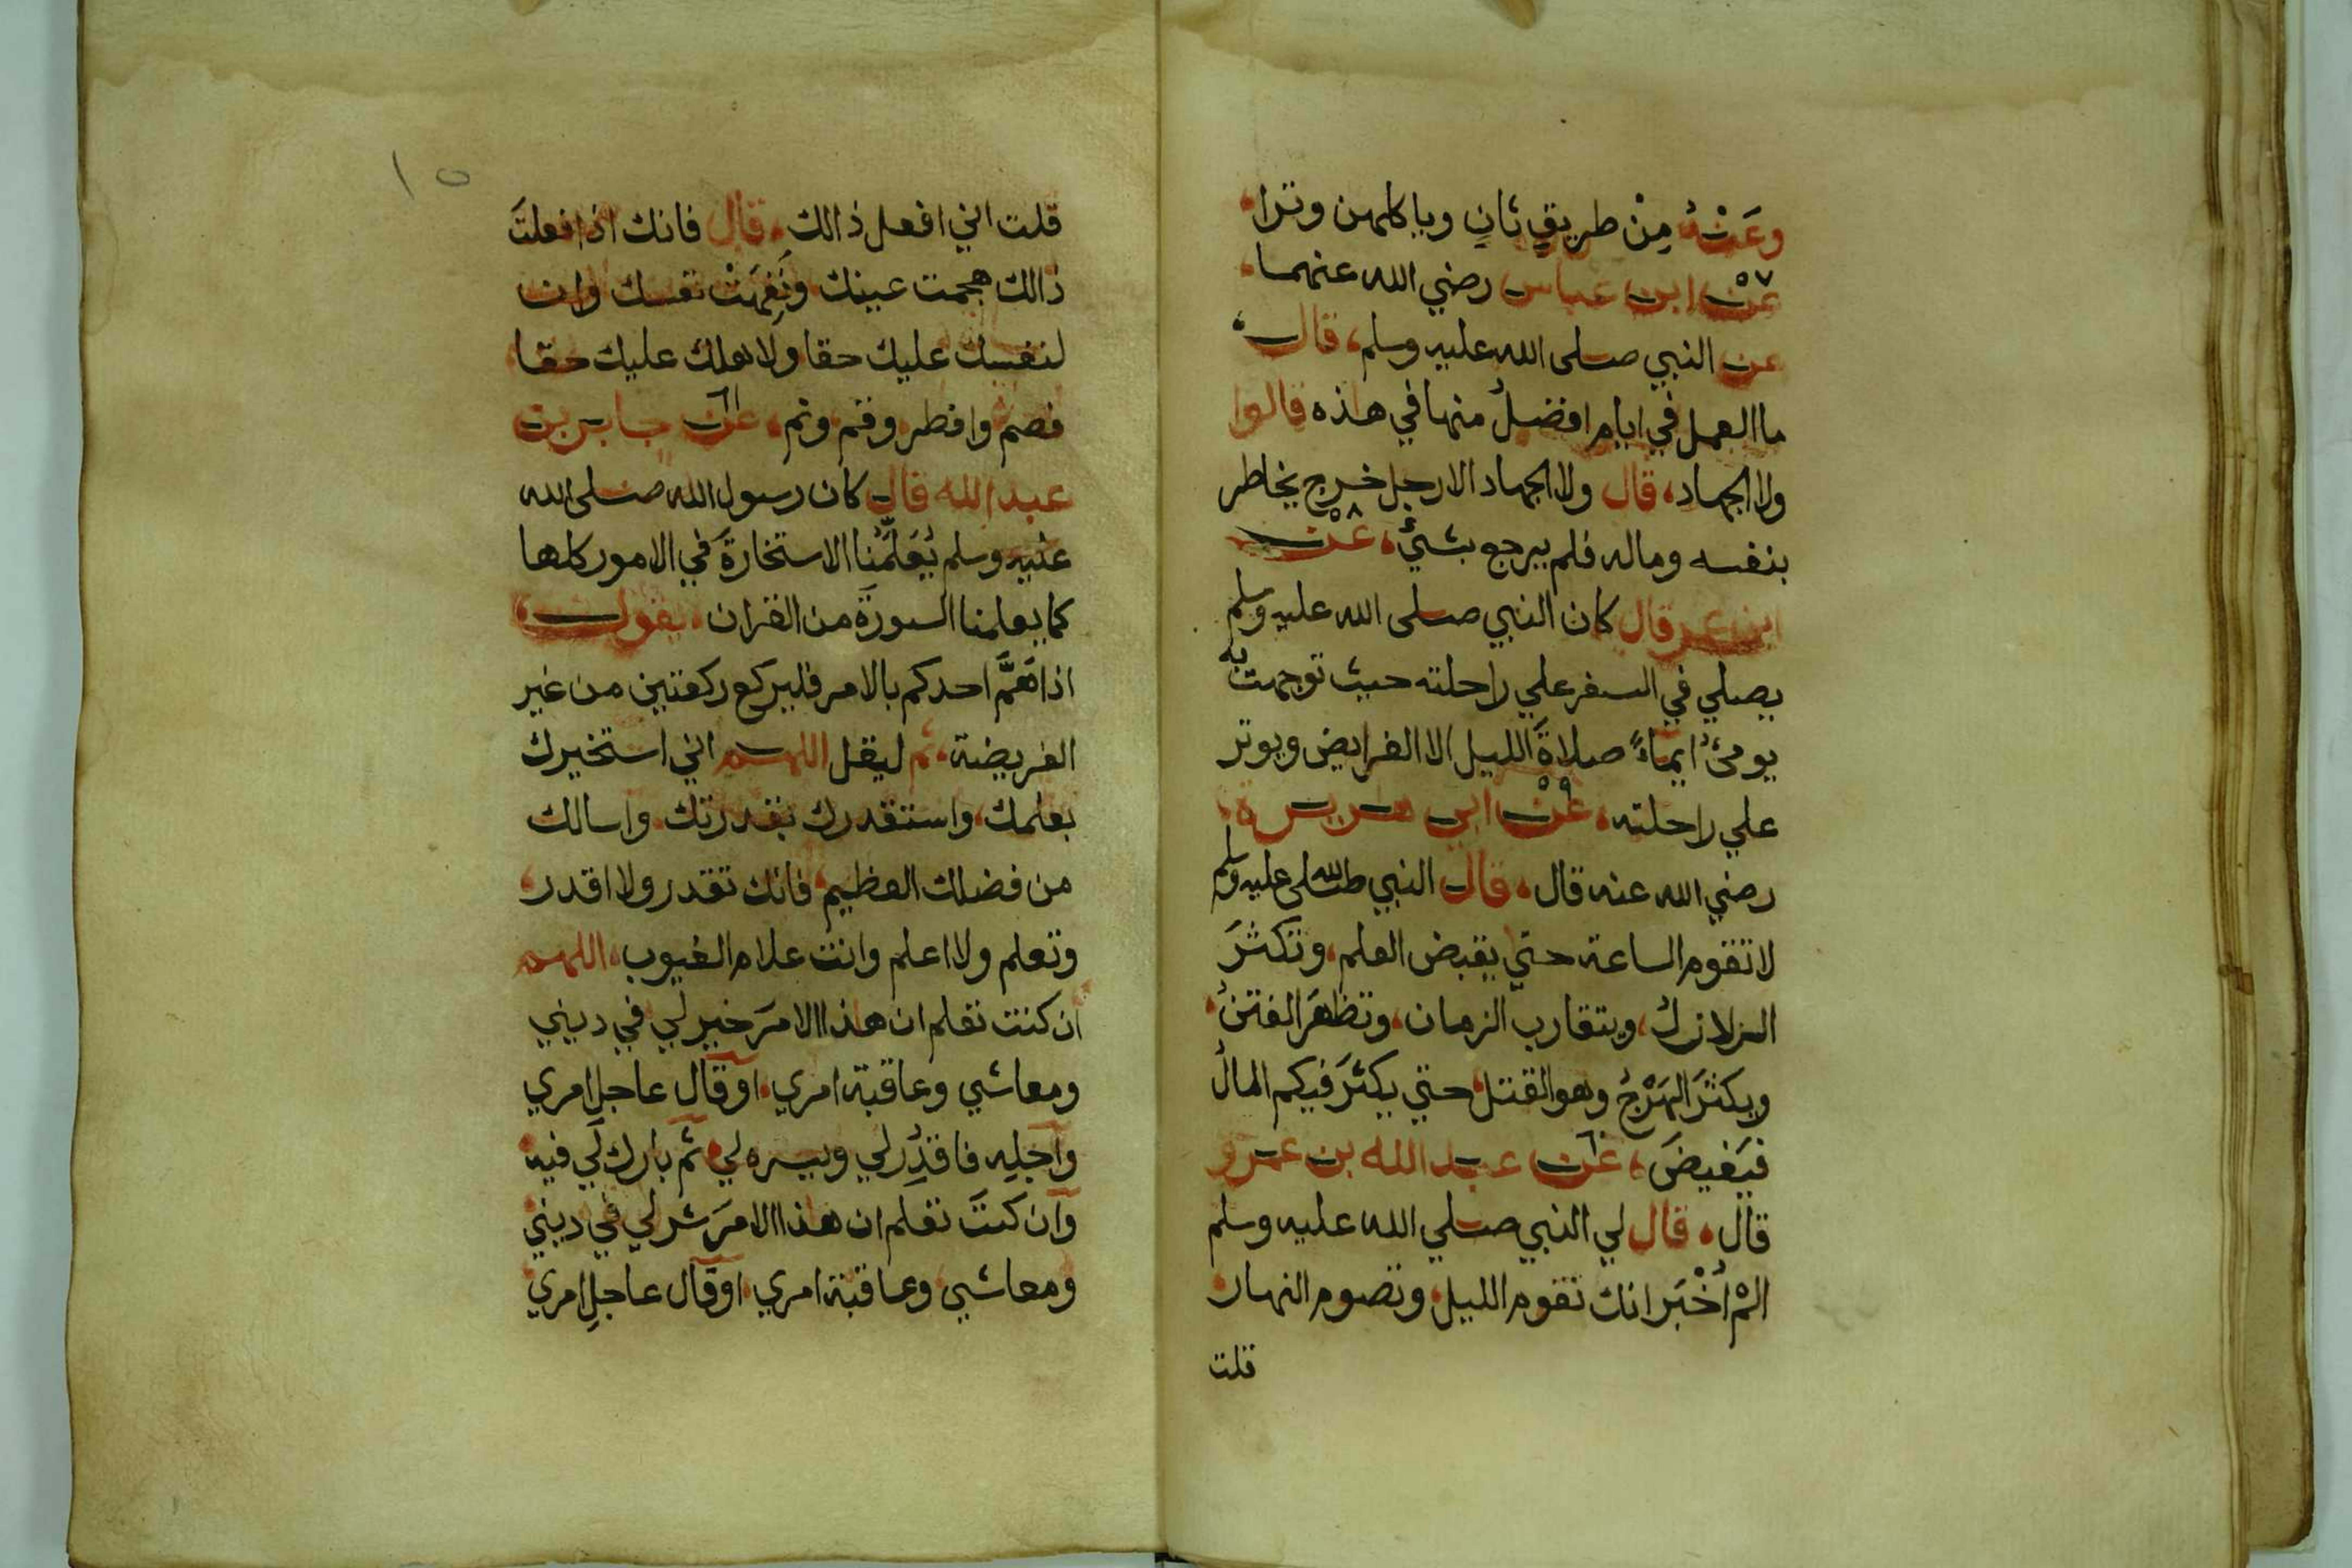 وعَنْهُ مِنْ طريقٍ ثانٍ وياكلهن وترا
٥٧
عن ابن عباس رضي الله عنهما
عن النبي صلى الله عليه وسلم قال
ما العمل في ايام افضلُ منها في هذه قالوا
ولا الجهاد، قال ولا الجهاد الا رجل خرج يخاطر
بنفسه وماله فلم يرجع بشئٍ، عن ٥٨
ابن عمر قال كان النبي صلى الله عليه وسلم
يصلي في السفر علي راحلته حيث توجهت به
يومئُ ايماءً صلاةَ الليل الا الفرايض ويوتر
علي راحلته، عن ٥٩ ابي هريرة
رضي الله عنه قال، قال النبي صلى الله عليه وسلم
لا تقوم الساعة حتي يقبض العلم، وتكثرَ
الزلازل، ويتقارب الزمان، وتظهَر الفتنُ
ويكثرَ الهَرْجُ وهو القتل حتي يكثرَ فيكم المالُ
فيَفيضَ، عن ٦٠ عبد الله بن عمرو
قال، قال لي النبي صلي الله عليه وسلم
المْ اُخْبَر انك تقوم الليل وتصوم النهار
قلت
١٥
قلت اني افعل ذالك، قال فانك اذا فعلتَ
ذالك هجمت عينك ونَفِهَتْ نفسك وان
لنفسك عليك حقا ولاهلك عليك حقا
فصم وافطر وقم ونم، عن ٦١ جابر بن
عبد الله قال كان رسول الله صلى الله
عليه وسلم يُعَلِّمُنا الاستخارةَ في الامور كلها
كما يعلمنا السورةَ من القران، يقول
اذا هَمَّ احدكم بالامر فليركع ركعتين من غير
الفريضة، ثم ليقل اللهم اني استخيرك
بعلمك، واستقدرك بقدرتك واسالك
من فضلك العظيم، فانك تقدر ولا اقدر،
وتعلم ولا اعلم وانت علام الغيوب، اللهم
ان كنت تعلم ان هذا الامرَ خير لي في ديني
ومعاشي وعاقبة امري، او قال عاجلِ امري
وآجلِه فاقدِرُ لي ويسره لي، ثم بارك لي فيه
وان كنتَ تعلم ان هذا الامرَ شر لي في ديني
ومعاشي وعاقبة امري، او قال عاجلِ امري